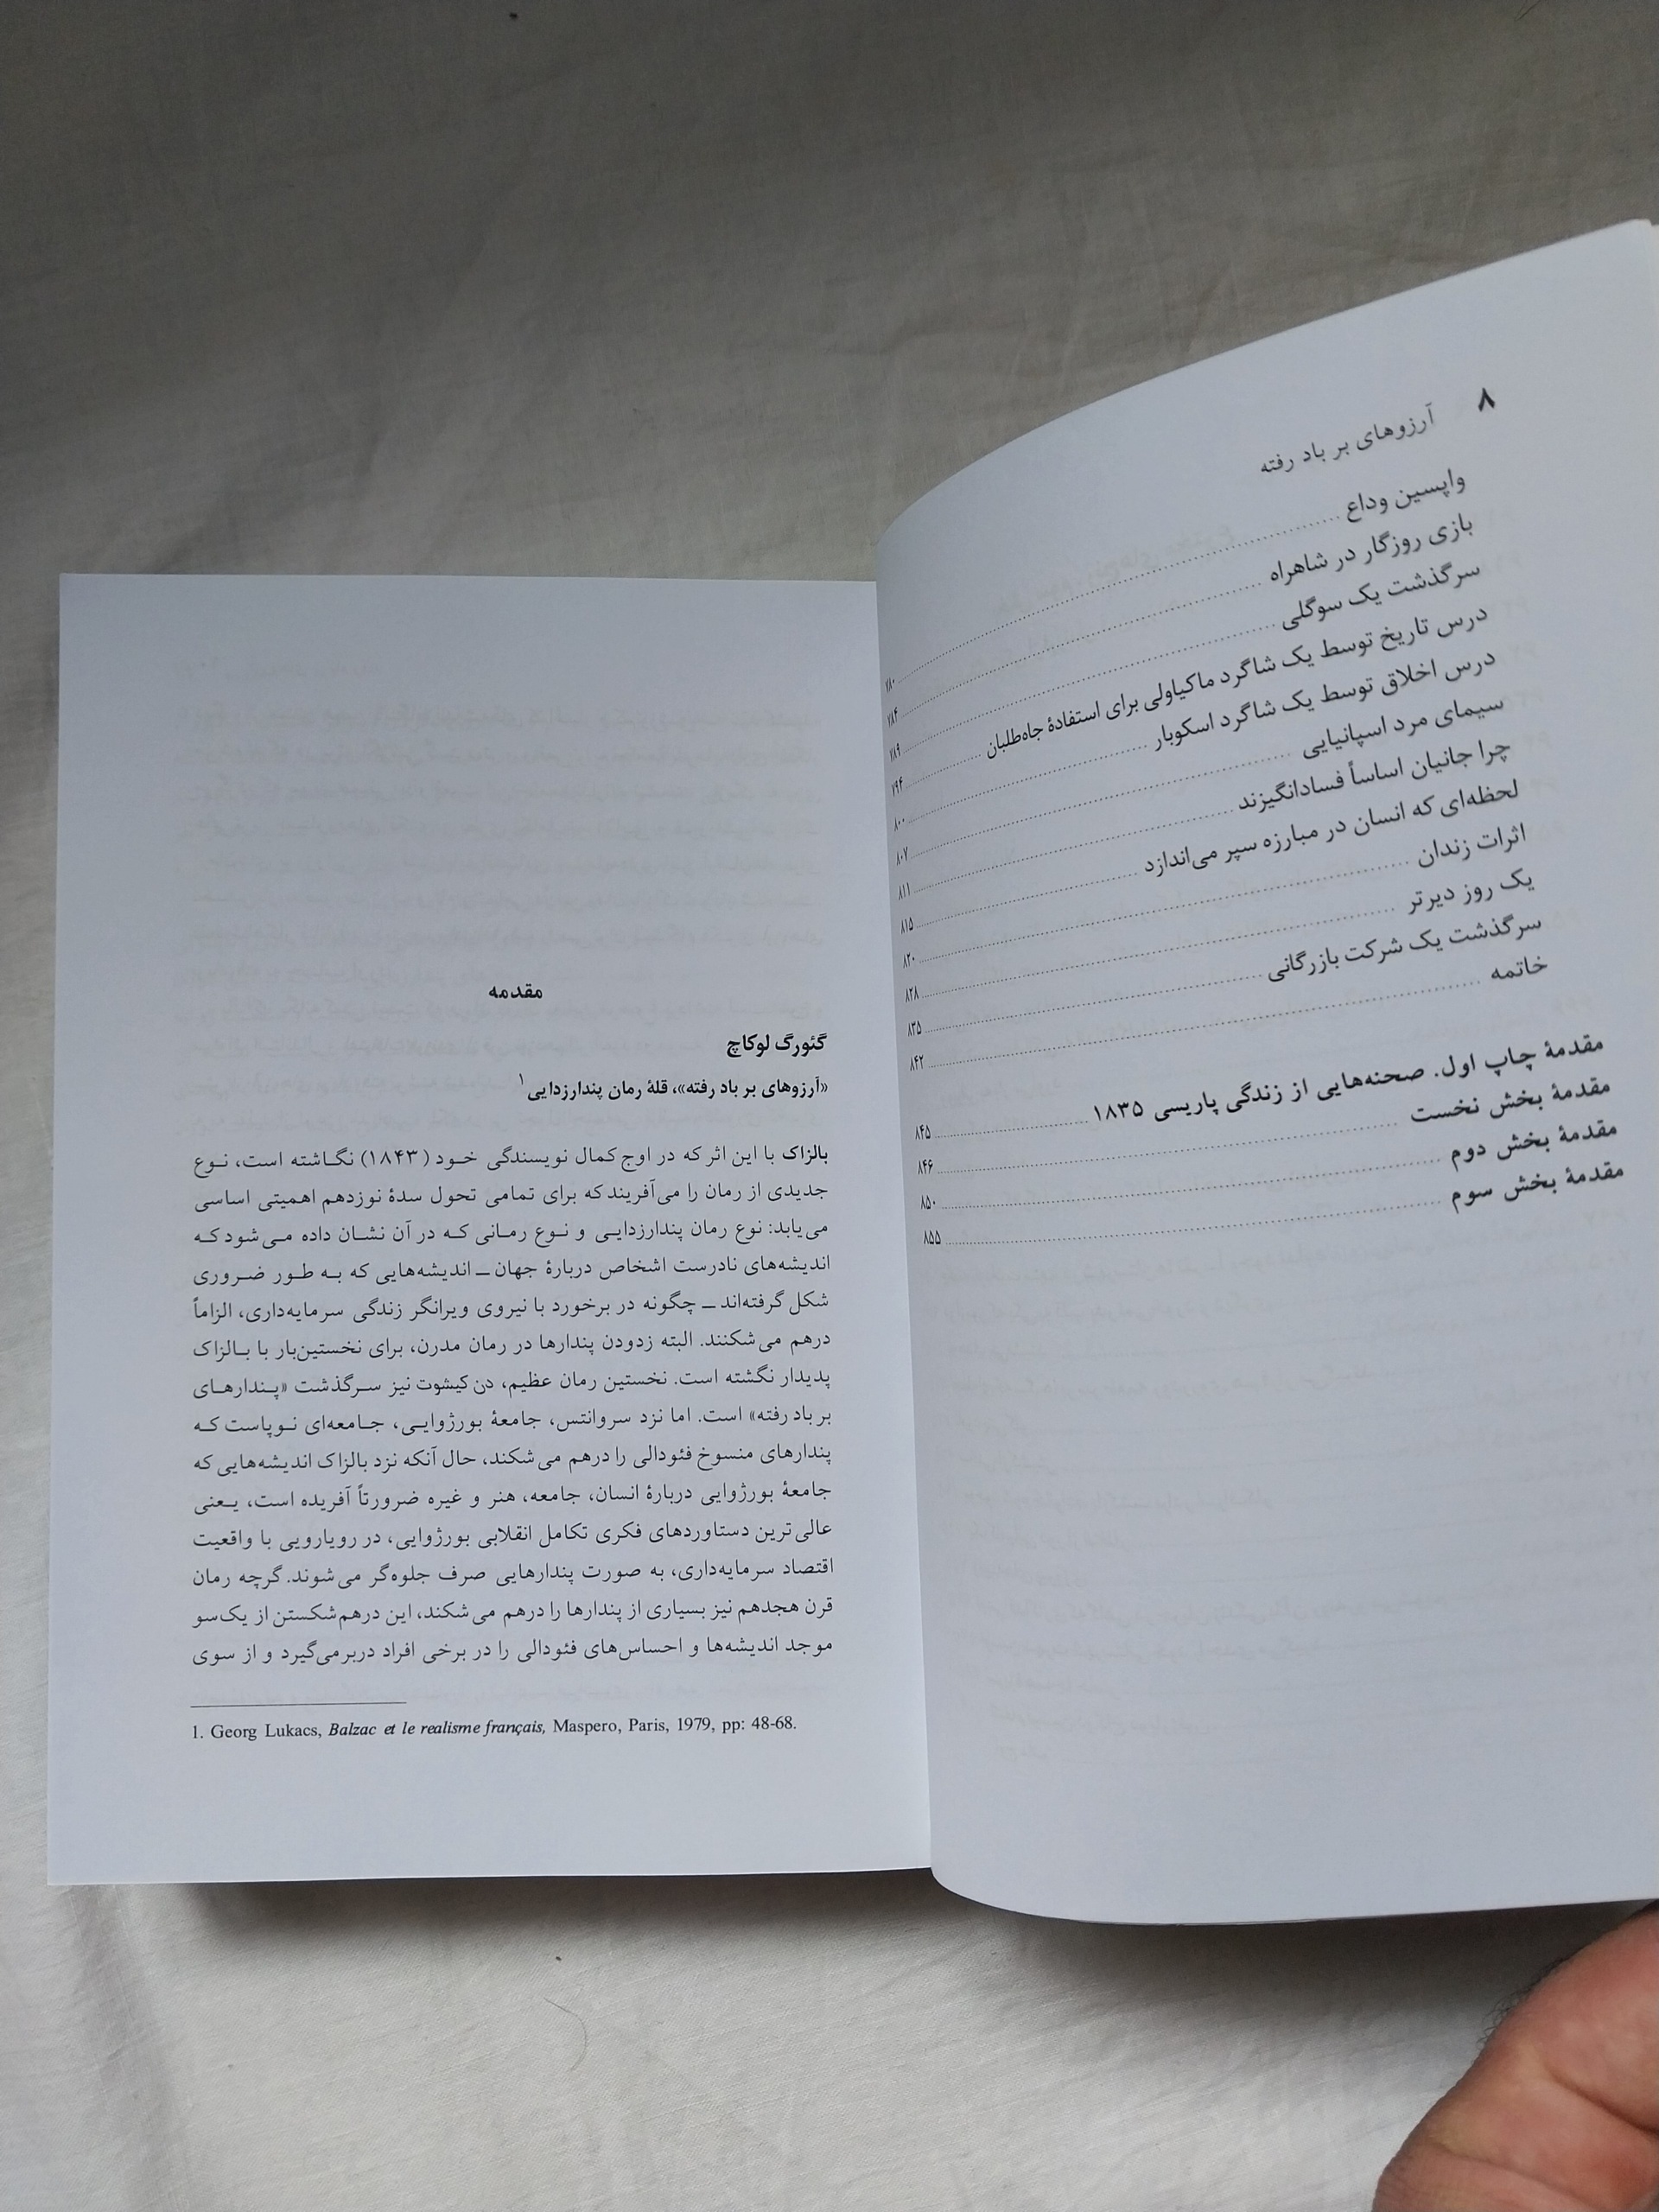 ۸ آرزوهای بر باد رفته
واپسین وداع ........ ۷۸۰
بازی روزگار در شاهراه ........ ۷۸۴
سرگذشت یک سوگلی ........ ۷۸۹
درس تاریخ توسط یک شاگرد ماکیاولی برای استفادهٔ جاه‌طلبان ........ ۷۹۴
درس اخلاق توسط یک شاگرد اسکوبار ........ ۸۰۰
سیمای مرد اسپانیایی ........ ۸۰۷
چرا جانیان اساساً فسادانگیزند ........ ۸۱۱
لحظه‌ای که انسان در مبارزه سپر می‌اندازد ........ ۸۱۵
اثرات زندان ........ ۸۲۰
یک روز دیرتر ........ ۸۲۸
سرگذشت یک شرکت بازرگانی ........ ۸۳۵
خاتمه ........ ۸۴۲
مقدمهٔ چاپ اول. صحنه‌هایی از زندگی پاریسی ۱۸۳۵ ........ ۸۴۵
مقدمهٔ بخش نخست ........ ۸۴۶
مقدمهٔ بخش دوم ........ ۸۵۰
مقدمهٔ بخش سوم ........ ۸۵۵
مقدمه
گئورگ لوکاچ
«آرزوهای بر باد رفته»، قلهٔ رمان پندارزدایی۱
بالزاک با این اثر که در اوج کمال نویسندگی خود (۱۸۴۳) نگاشته است، نوع
جدیدی از رمان را می‌آفریند که برای تمامی تحول سدهٔ نوزدهم اهمیتی اساسی
می‌یابد: نوع رمان پندارزدایی و نوع رمانی که در آن نشان داده می‌شود که
اندیشه‌های نادرست اشخاص دربارهٔ جهان ــ اندیشه‌هایی که به طور ضروری
شکل گرفته‌اند ــ چگونه در برخورد با نیروی ویرانگر زندگی سرمایه‌داری، الزاماً
درهم می‌شکنند. البته زدودن پندارها در رمان مدرن، برای نخستین‌بار با بالزاک
پدیدار نگشته است. نخستین رمان عظیم، دن کیشوت نیز سرگذشت «پندارهای
بر باد رفته» است. اما نزد سروانتس، جامعهٔ بورژوایی، جامعه‌ای نوپاست که
پندارهای منسوخ فئودالی را درهم می‌شکند، حال آنکه نزد بالزاک اندیشه‌هایی که
جامعهٔ بورژوایی دربارهٔ انسان، جامعه، هنر و غیره ضرورتاً آفریده است، یعنی
عالی‌ترین دستاوردهای فکری تکامل انقلابی بورژوایی، در رویارویی با واقعیت
اقتصاد سرمایه‌داری، به صورت پندارهایی صرف جلوه‌گر می‌شوند. گرچه رمان
قرن هجدهم نیز بسیاری از پندارها را درهم می‌شکند، این درهم‌شکستن از یک‌سو
موجد اندیشه‌ها و احساس‌های فئودالی را در برخی افراد دربرمی‌گیرد و از سوی
1. Georg Lukacs, Balzac et le realisme français, Maspero, Paris, 1979, pp: 48-68.